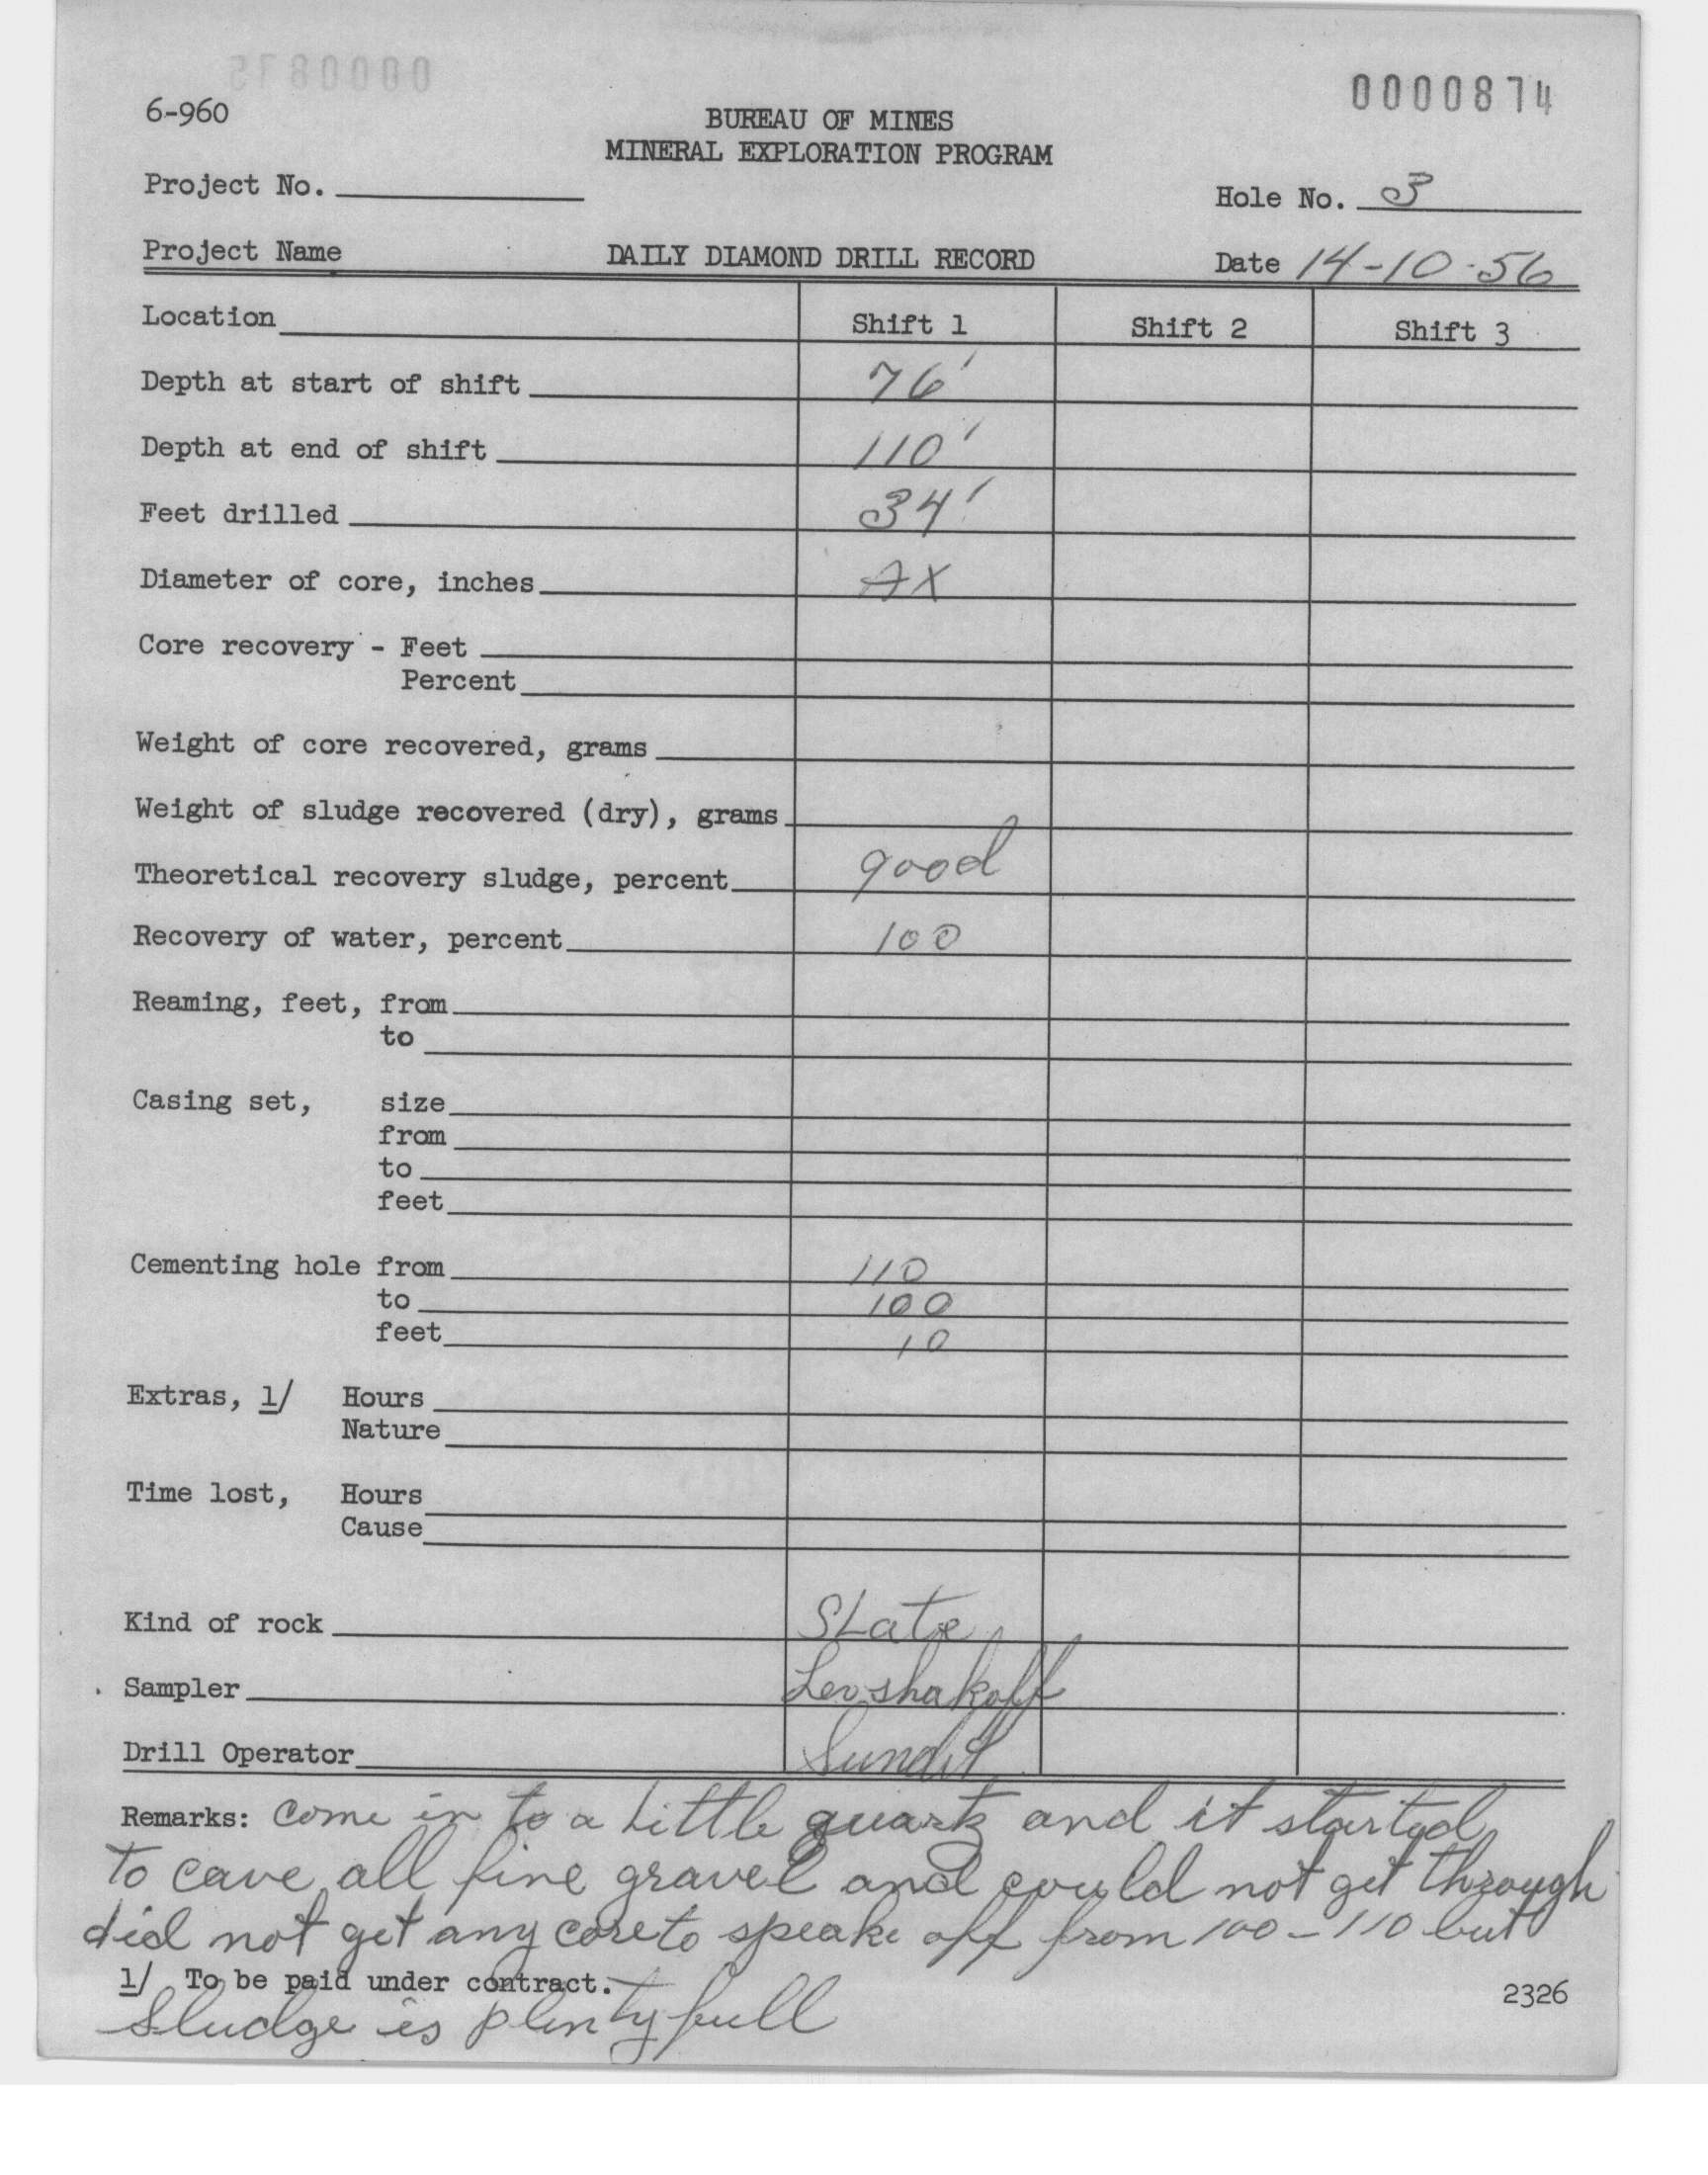 0000874
6-960
BUREAU OF MINES
MINERAL EXPLORATION PROGRAM
Project No.
Hole No. 3
Project Name DAILY DIAMOND DRILL RECORD Date 14-10-56
Location Shift 1 Shift 2 Shift 3
Depth at start of shift 76'
Depth at end of shift 110'
Feet drilled 34'
Diameter of core, inches AX
Core recovery - Feet
Percent
Weight of core recovered, grams
Weight of sludge recovered (dry), grams
Theoretical recovery sludge, percent good
Recovery of water, percent 100
Reaming, feet, from
to
Casing set, size
from
to
feet
Cementing hole from 110
to 100
feet 10
Extras, 1/ Hours
Nature
Time lost, Hours
Cause
Kind of rock SLate
Sampler Levshakoff
Drill Operator
Remarks: Come in to a Little quartz and it started
to cave all fine gravel and could not get through
did not get any core to speake off from 100-110 but
1/ To be paid under contract. 2326
Sludge is plentyfull